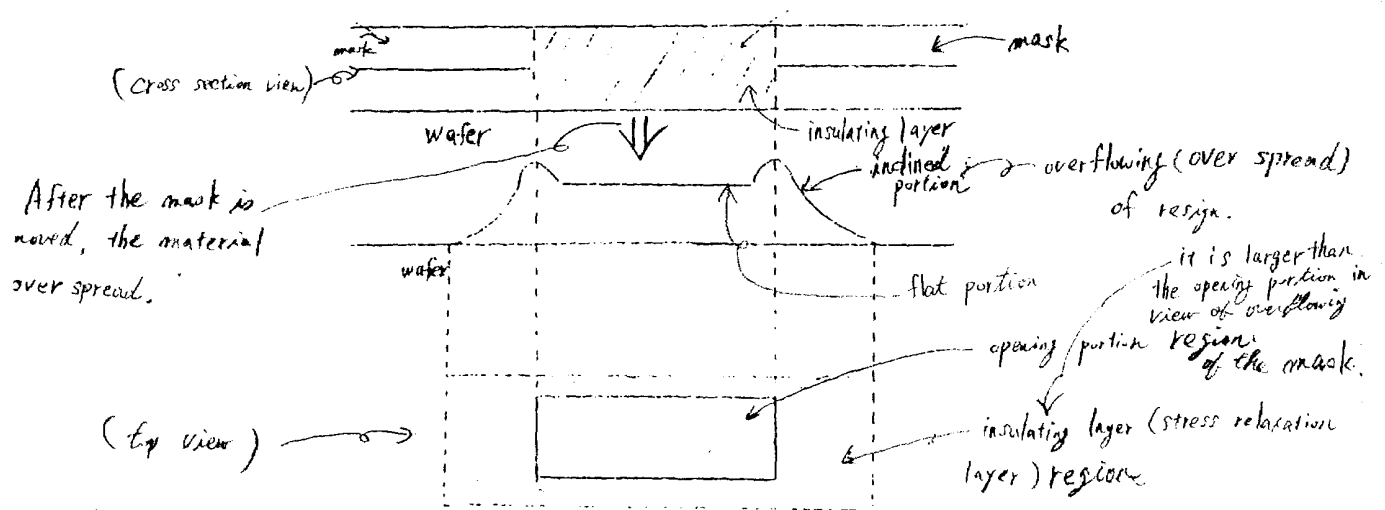 mask
mask
(cross section view)
wafer
insulating layer
inclined
portion
overflowing (over spread)
of resign.
After the mask is
moved, the material
over spread.
wafer
flat portion
it is larger than
the opening portion in
view of overflowing
opening portion region
of the mask.
(top view)
insulating layer (stress relaxation
layer) region